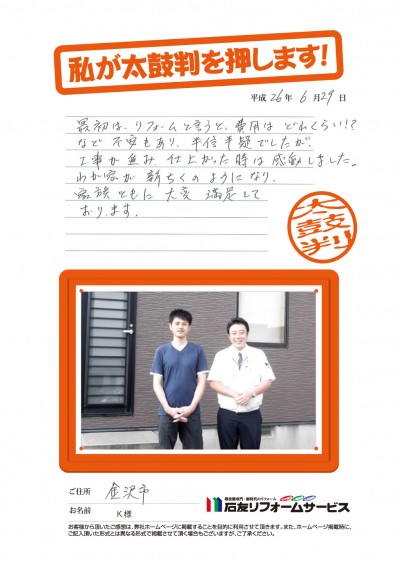 私が太鼓判を押します!
平成 26 年 6 月 29 日
最初は、リフォームと言うと、費用は どれくらい!?
など 不安もあり、半信半疑でしたが、
工事が進み 仕上がった時は 感動しました。
わが家が 新ちくのようになり、
家族 ともに 大変 満足して
おります。
太鼓判
ご住所 金沢市
お名前 K 様
増改築専門・新時代のリフォーム
石友リフォームサービス
お客様から頂いたご感想は、弊社ホームページに掲載することを目的に利用させて頂きます。また、ホームページ掲載時に、
ご記入頂いた形式とは異なる形式で掲載させて頂く場合もございますが、ご了承ください。